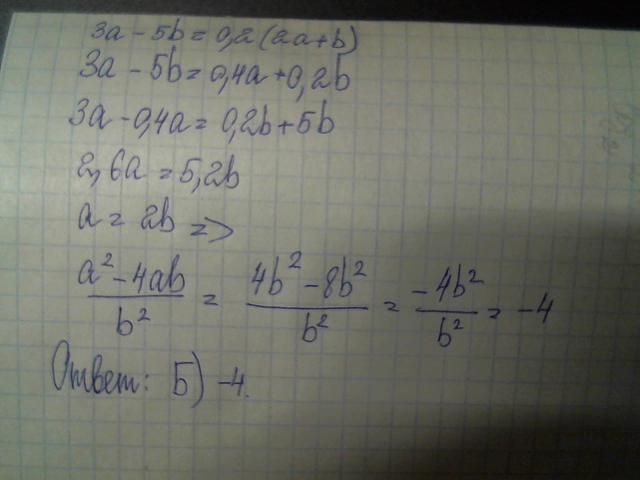 3a - 5b = 0,2(2a+b)
3a - 5b = 0,4a + 0,2b
3a - 0,4a = 0,2b + 5b
2,6a = 5,2b
a = 2b =>
a² - 4ab / b² = 4b² - 8b² / b² = -4b² / b² = -4
Ответ: Б) -4.